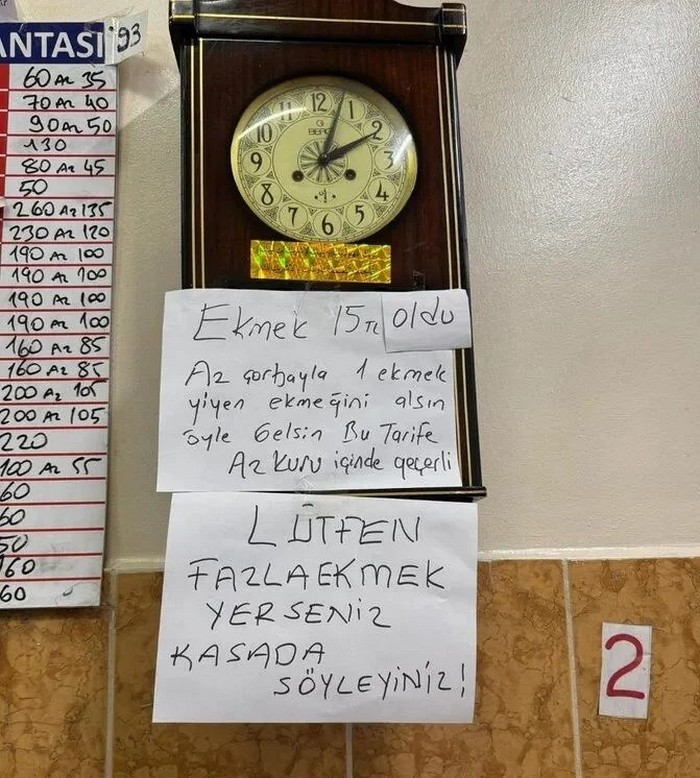 ANTASI
'93
60 Az 35
70 Az 40
90 Az 50
130
80 Az 45
50
260 Az 135
230 Az 120
190 Az 100
190 Az 100
190 Az 100
190 Az 100
160 Az 85
160 Az 85
200 Az 105
200 Az 105
220
100 Az 55
60
60
50
160
60
12
1
2
3
4
5
6
7
8
9
10
11
Ekmek 15 TL oldu
Az çorbayla 1 ekmek
yiyen ekmeğini alsın
öyle Gelsin Bu Tarife
Az Kuru içinde geçerli
LÜTFEN
FAZLA EKMEK
YERSENİZ
KASADA
SÖYLEYİNİZ!
2